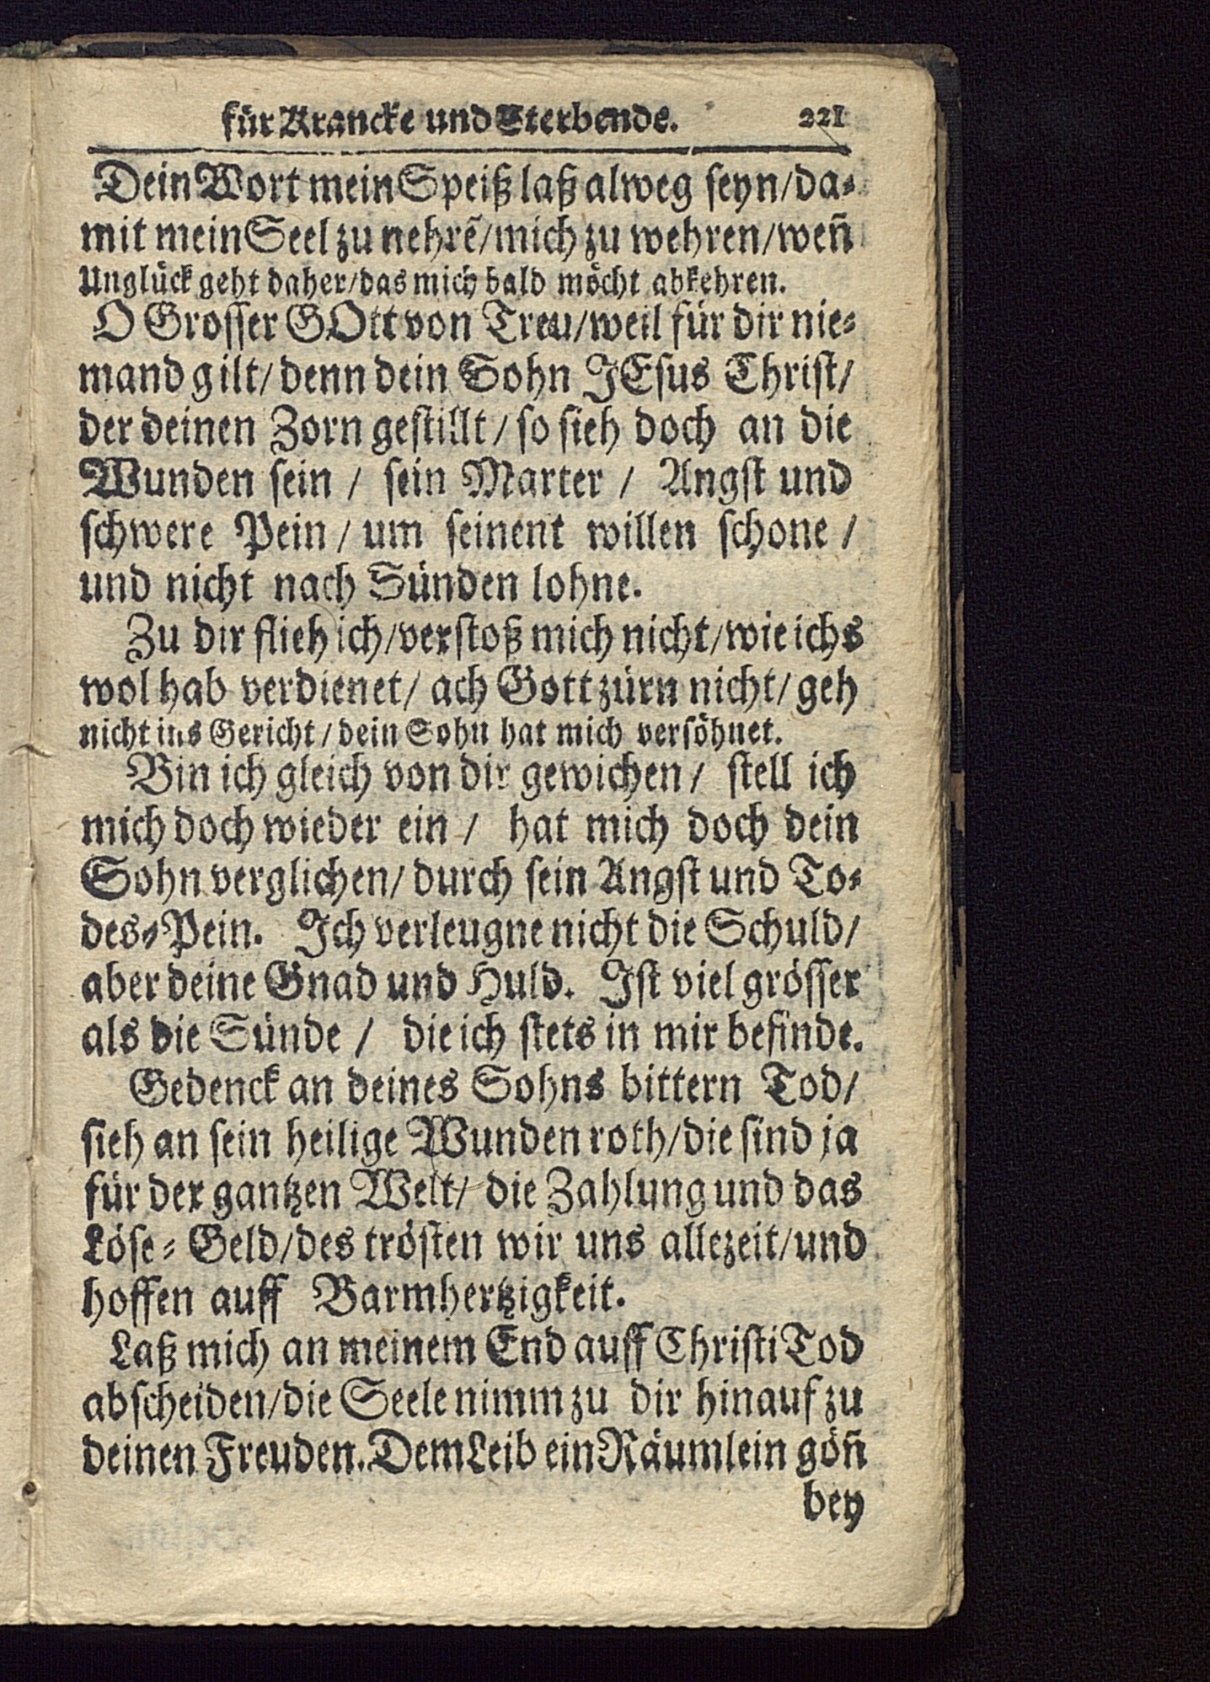 für Krancke und Sterbende. 221
Dein Wort mein Speiß laß alweg seyn/da-
mit mein Seel zu nehrẽ/mich zu wehren/weñ
Unglück geht daher/das mich bald möcht abkehren.
O Grosser GOtt von Treu/weil für dir nie-
mand gilt/denn dein Sohn JEsus Christ/
der deinen Zorn gestillt/so sieh doch an die
Wunden sein / sein Marter / Angst und
schwere Pein / um seinent willen schone /
und nicht nach Sünden lohne.
Zu dir flieh ich/verstoß mich nicht/wie ichs
wol hab verdienet/ ach Gott zürn nicht/ geh
nicht ins Gericht / dein Sohn hat mich versöhnet.
Bin ich gleich von dir gewichen/ stell ich
mich doch wieder ein / hat mich doch dein
Sohn verglichen/ durch sein Angst und To-
des-Pein. Ich verleugne nicht die Schuld/
aber deine Gnad und Huld. Ist viel grösser
als die Sünde / die ich stets in mir befinde.
Gedenck an deines Sohns bittern Tod/
sieh an sein heilige Wunden roth/die sind ja
für der gantzen Welt/ die Zahlung und das
Löse-Geld/des trösten wir uns allezeit/und
hoffen auff Barmhertzigkeit.
Laß mich an meinem End auff Christi Tod
abscheiden/die Seele nimm zu dir hinauf zu
deinen Freuden. Dem Leib ein Räumlein göñ
bey